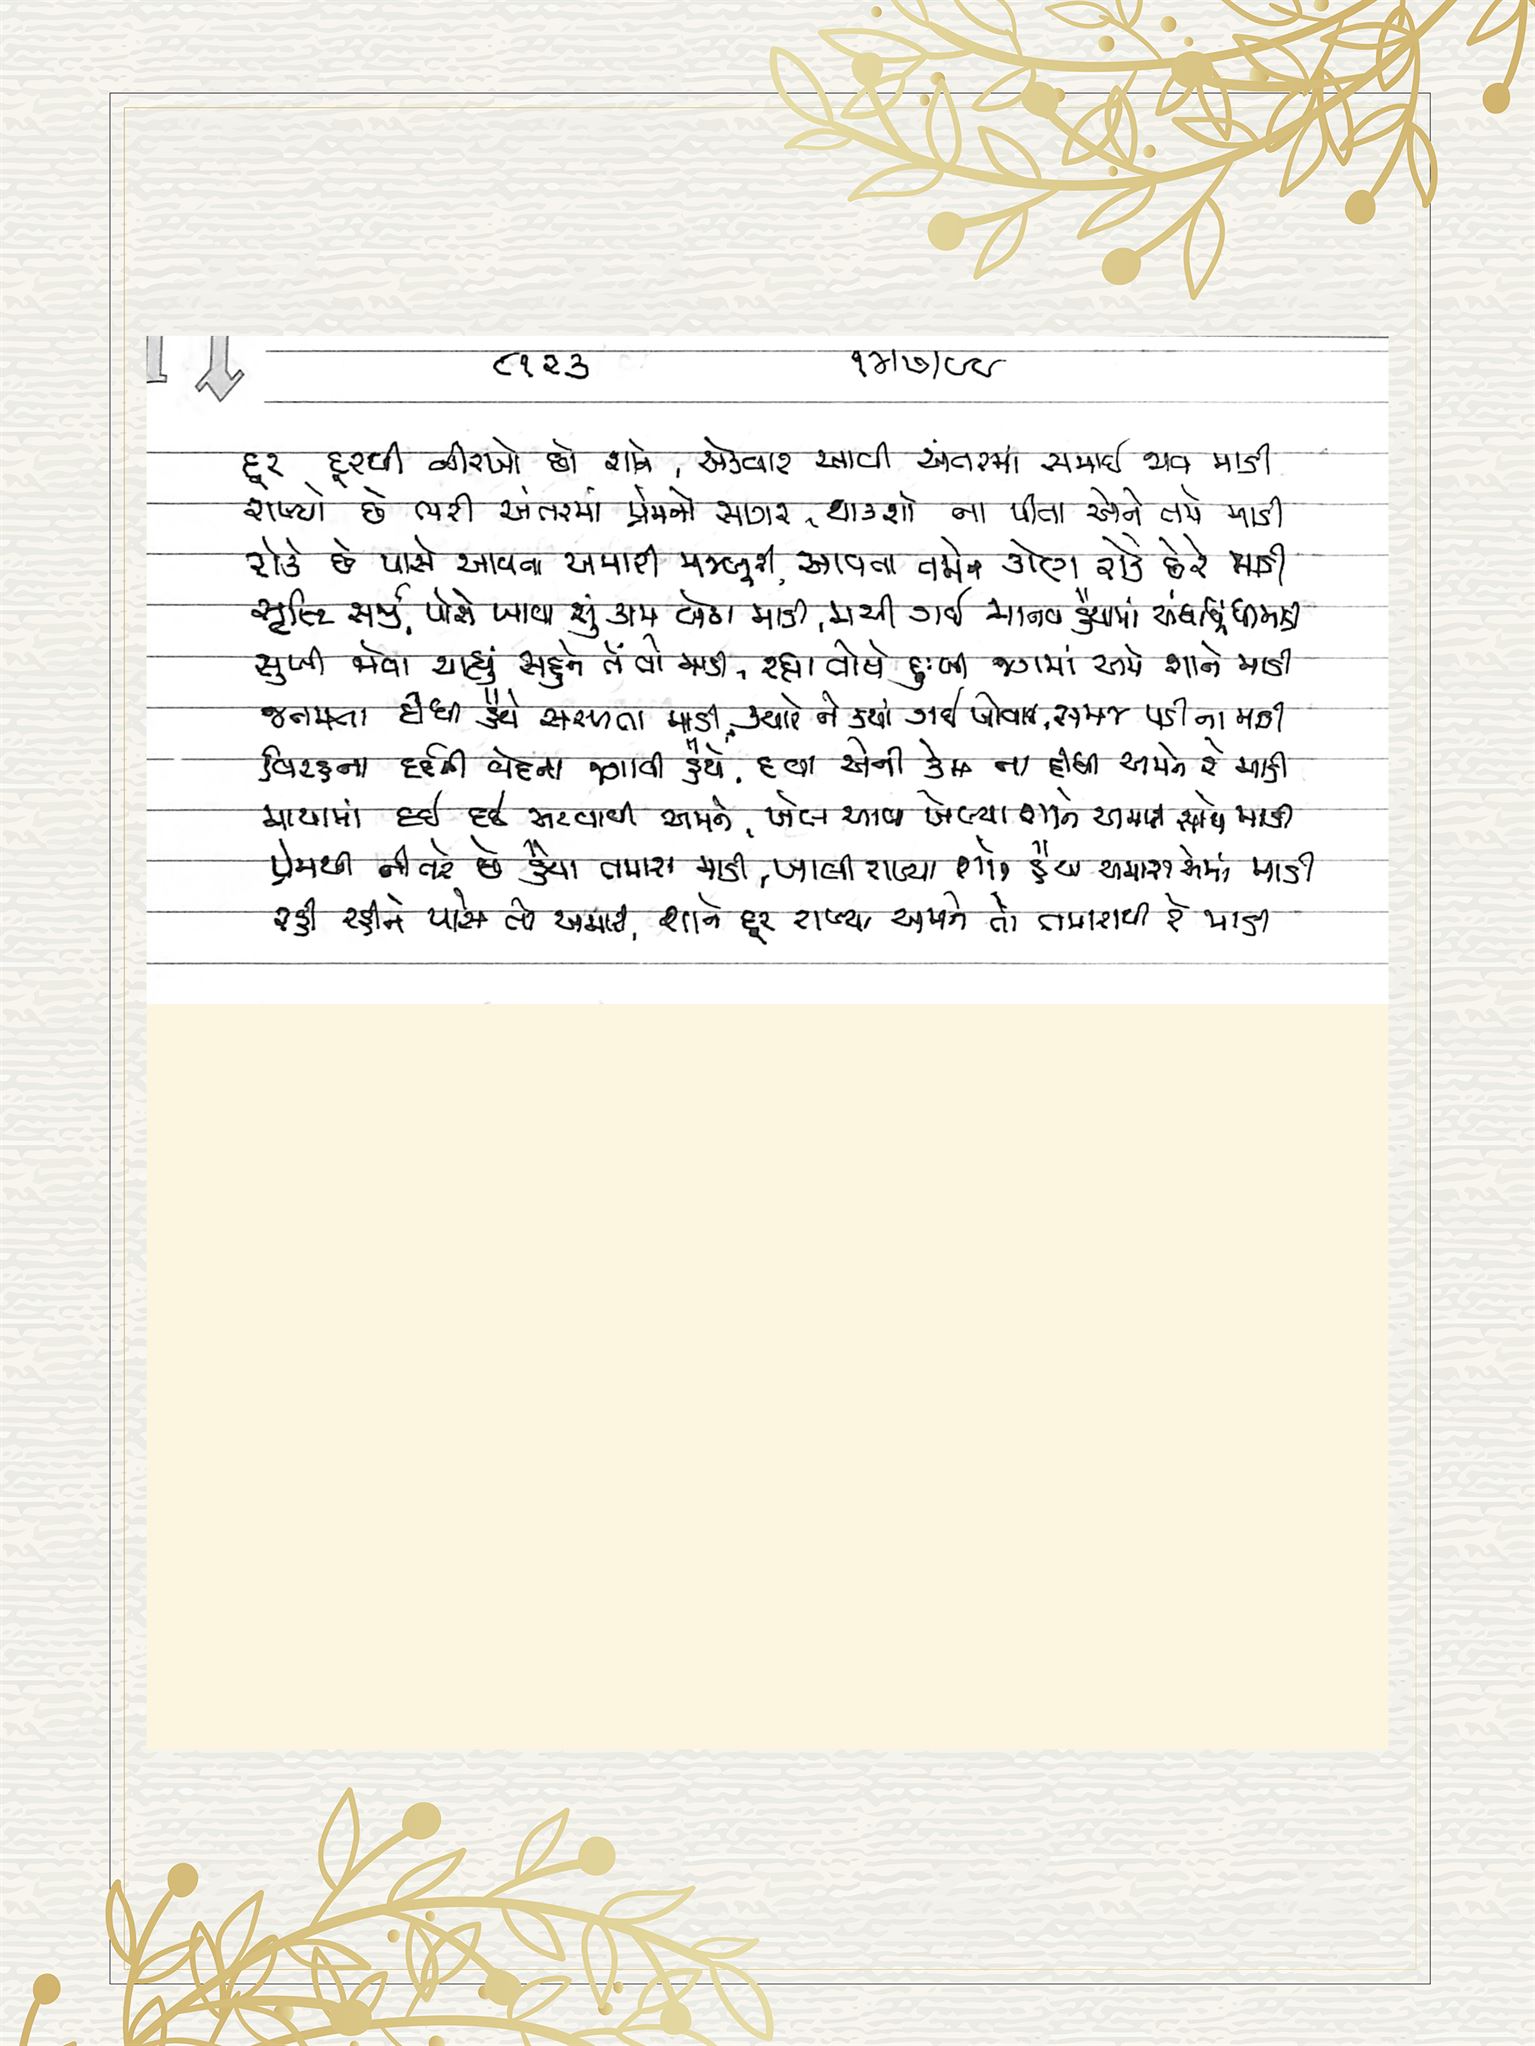 ૮૧૨૩ ૧૪/૭/૯૯
દૂર દૂરથી નીરખો છો શાને, એકવાર આવી અંતરમાં સમાઈ જાવ માડી
રાખ્યો છે ભરી અંતરમાં પ્રેમનો સાગર, થાકશો ના પીતા એને તમે માડી
રોકે છે પાસે આવના અમારી મજબૂરી, આવતા તમને કોણ રોકે છે રે માડી
સૃષ્ટિ સર્જી, પોસે ખાવા શું કામ બેઠા માડી, મચી ગઈ માનવ હૈયામાં માડી
સુખી જોવા ચાહ્યું સહુને તેં તો માડી, રહ્યા તોયે દુઃખી જગમાં અમે શાને માડી
જનમતા દીધી હૈયે સરળતા માડી, ક્યારે ને ક્યાં ગઈ ખોવાઈ, સમજ પડી ના માડી
વિરહના દર્દની વેદના જગાવી હૈયે, દવા એની કેમ ના દીધી અમને રે માડી
માયામાં દઈ દઈ અટવાવી અમને, ખેલ આવા ખેલ્યા શાને અમારી સાથે માડી
પ્રેમથી નીતરે છે હૈયા તમારા માડી, ખાલી રાખ્યા શાને હૈયા અમારા એમાં માડી
રહી રહીને પાસે તો અમારી, શાને દૂર રાખ્યા અમને તો તમારાથી રે માડી